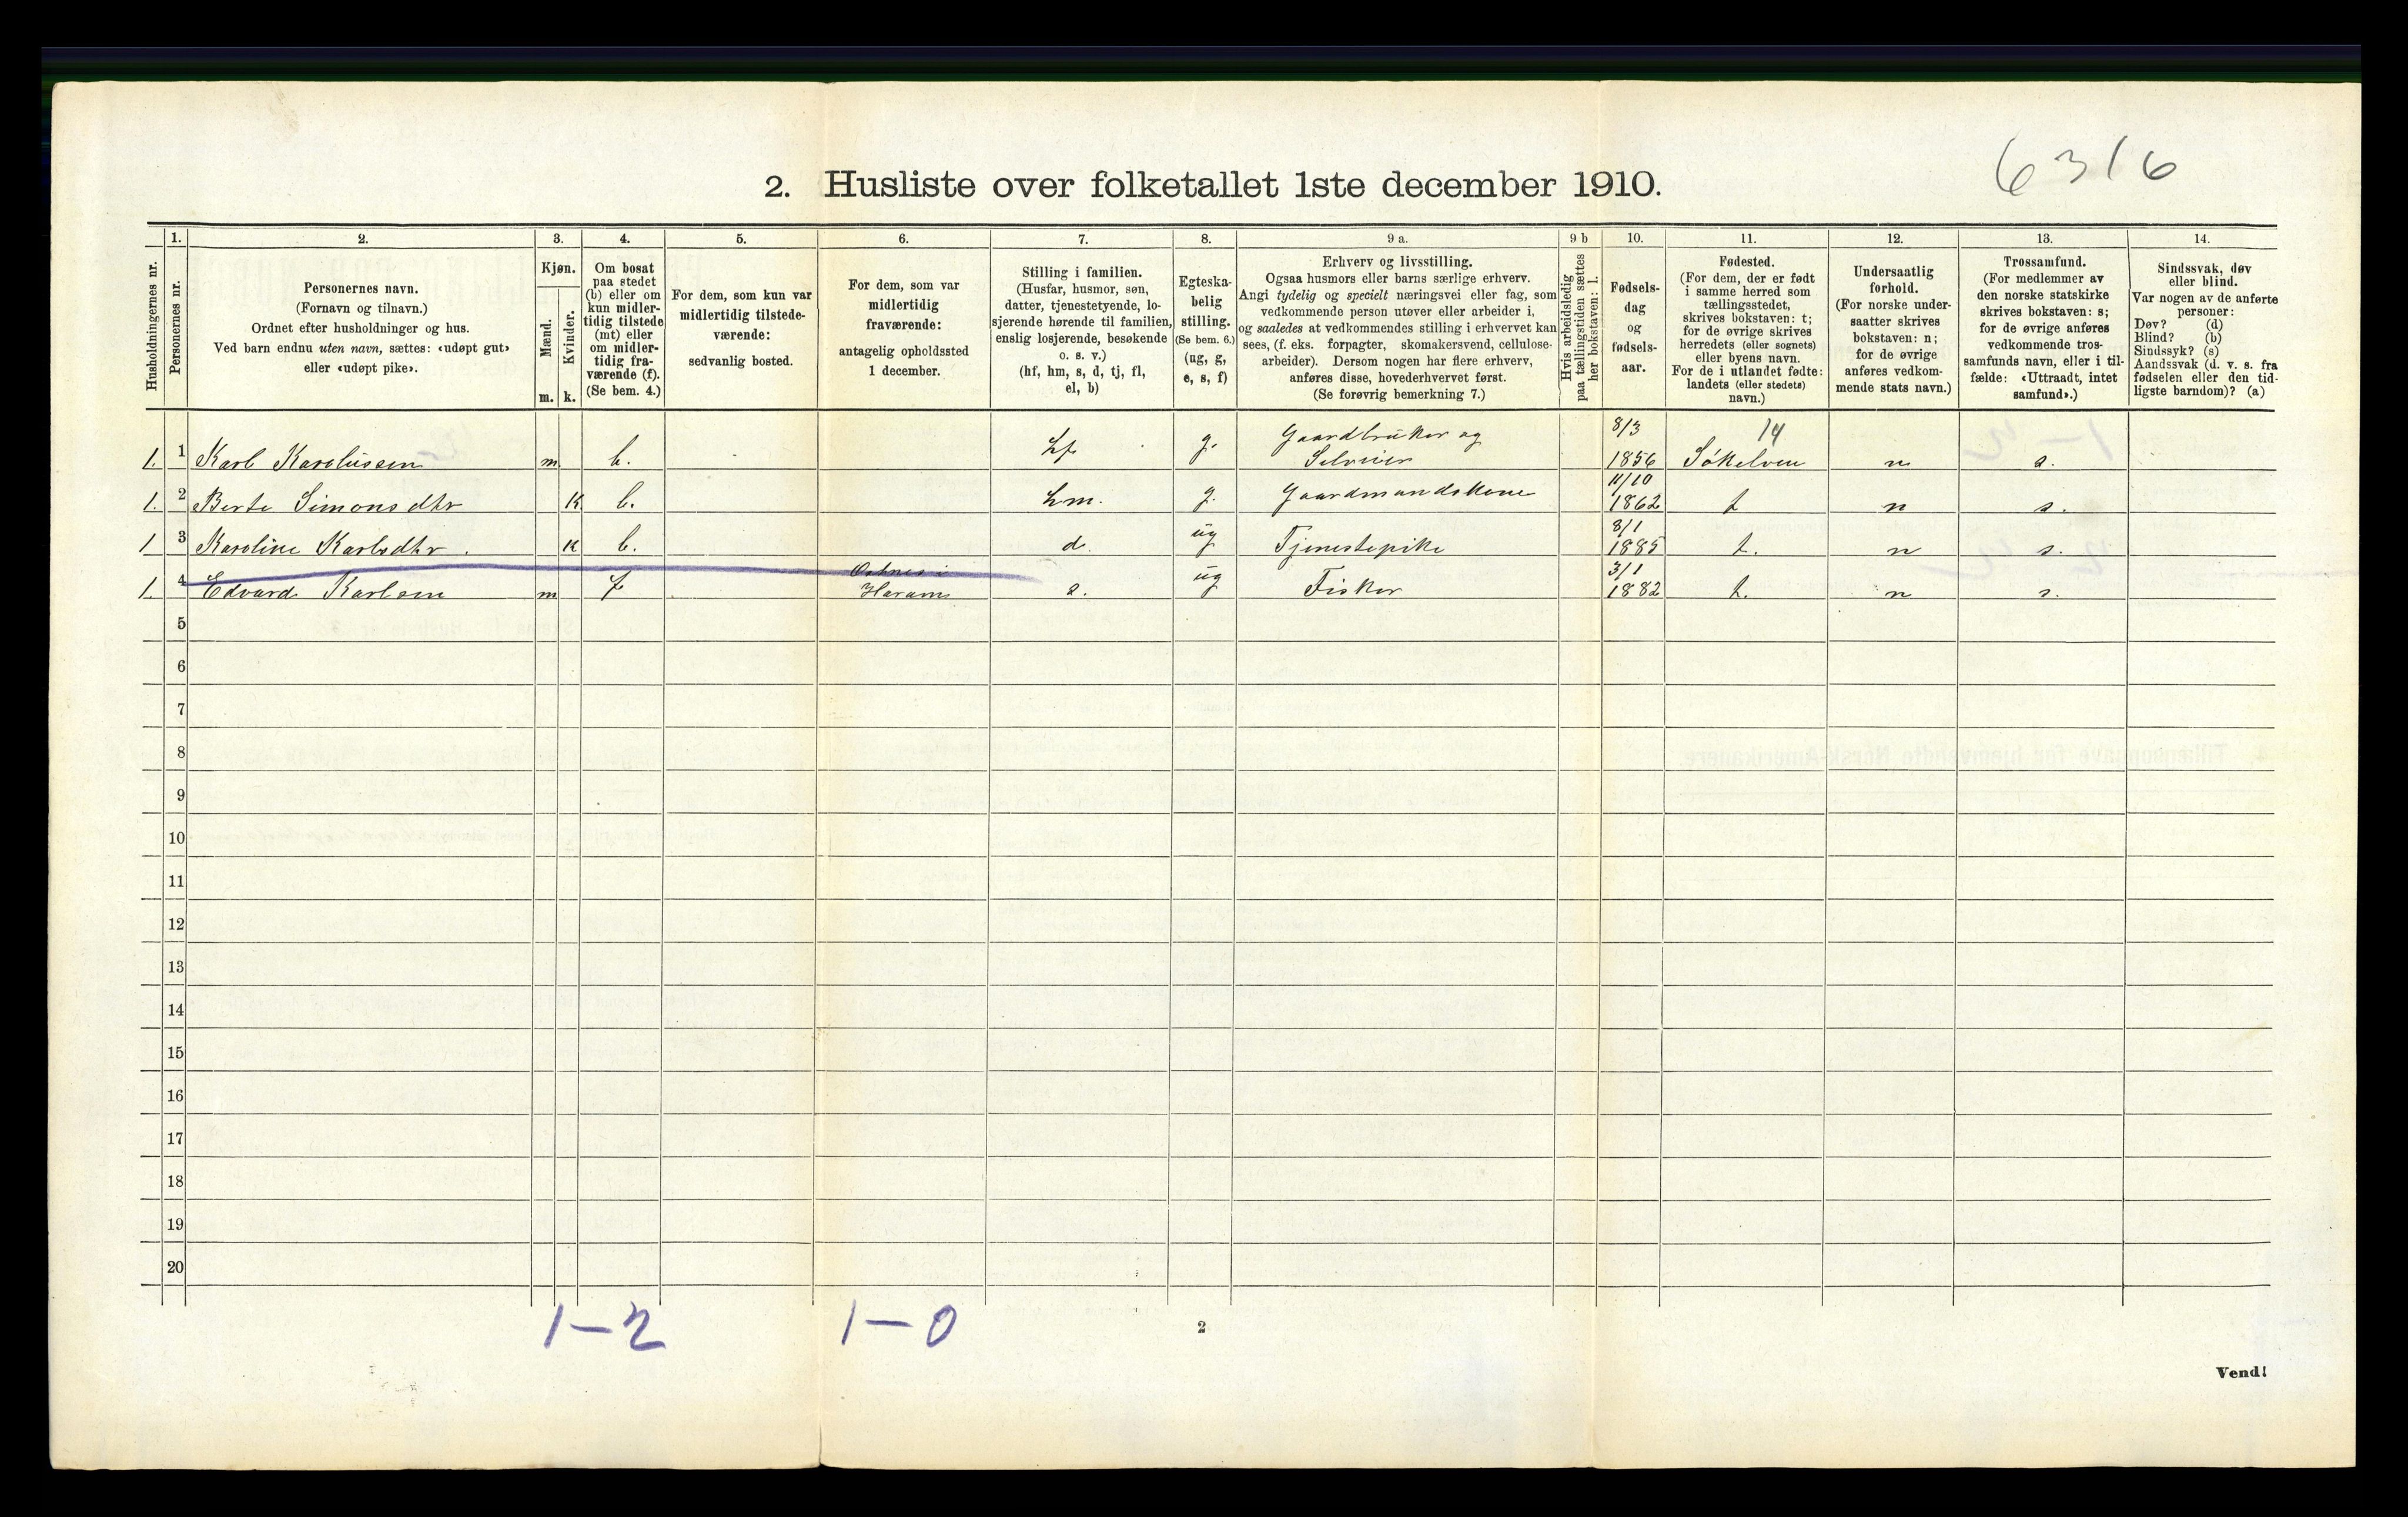 6316
2. Husliste over folketallet 1ste december 1910.
1. 2. 3. 4. 5. 6. 7. 8. 9 a. 9 b 10. 11. 12. 13. 14.
Husholdningernes nr.
Personernes nr.
Personernes navn.
(Fornavn og tilnavn.)
Ordnet efter husholdninger og hus.
Ved barn endnu uten navn, sættes: «udøpt gut»
eller «udøpt pike».
Kjøn.
Mænd.
Kvinder.
m. k.
Om bosat
paa stedet
(b) eller om
kun midler-
tidig tilstede
(mt) eller
om midler-
tidig fra-
værende (f).
(Se bem. 4.)
For dem, som kun var
midlertidig tilstede-
værende:
sedvanlig bosted.
For dem, som var
midlertidig
fraværende:
antagelig opholdssted
1 december.
Stilling i familien.
(Husfar, husmor, søn,
datter, tjenestetyende, lo-
sjerende hørende til familien,
enslig losjerende, besøkende
o. s. v.)
(hf, hm, s, d, tj, fl,
el, b)
Egteska-
belig
stilling.
(Se bem. 6.)
(ug, g,
e, s, f)
Erhverv og livsstilling.
Ogsaa husmors eller barns særlige erhverv.
Angi tydelig og specielt næringsvei eller fag, som
vedkommende person utøver eller arbeider i,
og saaledes at vedkommendes stilling i erhvervet kan
sees, (f. eks. forpagter, skomakersvend, cellulose-
arbeider). Dersom nogen har flere erhverv,
anføres disse, hovederhvervet først.
(Se forøvrig bemerkning 7.)
Hvis arbeidsledig
paa tællingstiden sættes
her bokstaven: l.
Fødsels-
dag
og
fødsels-
aar.
Fødested.
(For dem, der er født
i samme herred som
tællingsstedet,
skrives bokstaven: t;
for de øvrige skrives
herredets (eller sognets)
eller byens navn.
For de i utlandet fødte:
landets (eller stedets)
navn.)
Undersaatlig
forhold.
(For norske under-
saatter skrives
bokstaven: n;
for de øvrige
anføres vedkom-
mende stats navn.)
Trossamfund.
(For medlemmer av
den norske statskirke
skrives bokstaven: s;
for de øvrige anføres
vedkommende tros-
samfunds navn, eller i til-
fælde: «Uttraadt, intet
samfund».)
Sindssvak, døv
eller blind.
Var nogen av de anførte
personer:
Døv? (d)
Blind? (b)
Sindssyk? (s)
Aandssvak (d. v. s. fra
fødselen eller den tid-
ligste barndom)? (a)
Gaardbruker og 8/3 14
1. 1 Karl Karolussen m b. hf g. Selveier 1856 Søkelven n s.
11/10
1. 2 Berte Simonsdtr k b. hm. g. Gaardmandskone 1862 t n s.
8/1
1 3 Karoline Karlsdtr. k b. d. ug Tjenestepike 1885 t. n s.
3/1
1. 4 Edvard Karlsen m f Haram s. ug Fisker 1882 t. n s.
5
6
7
8
9
10
11
12
13
14
15
16
17
18
19
20
1-2 1-0
2
Vend!